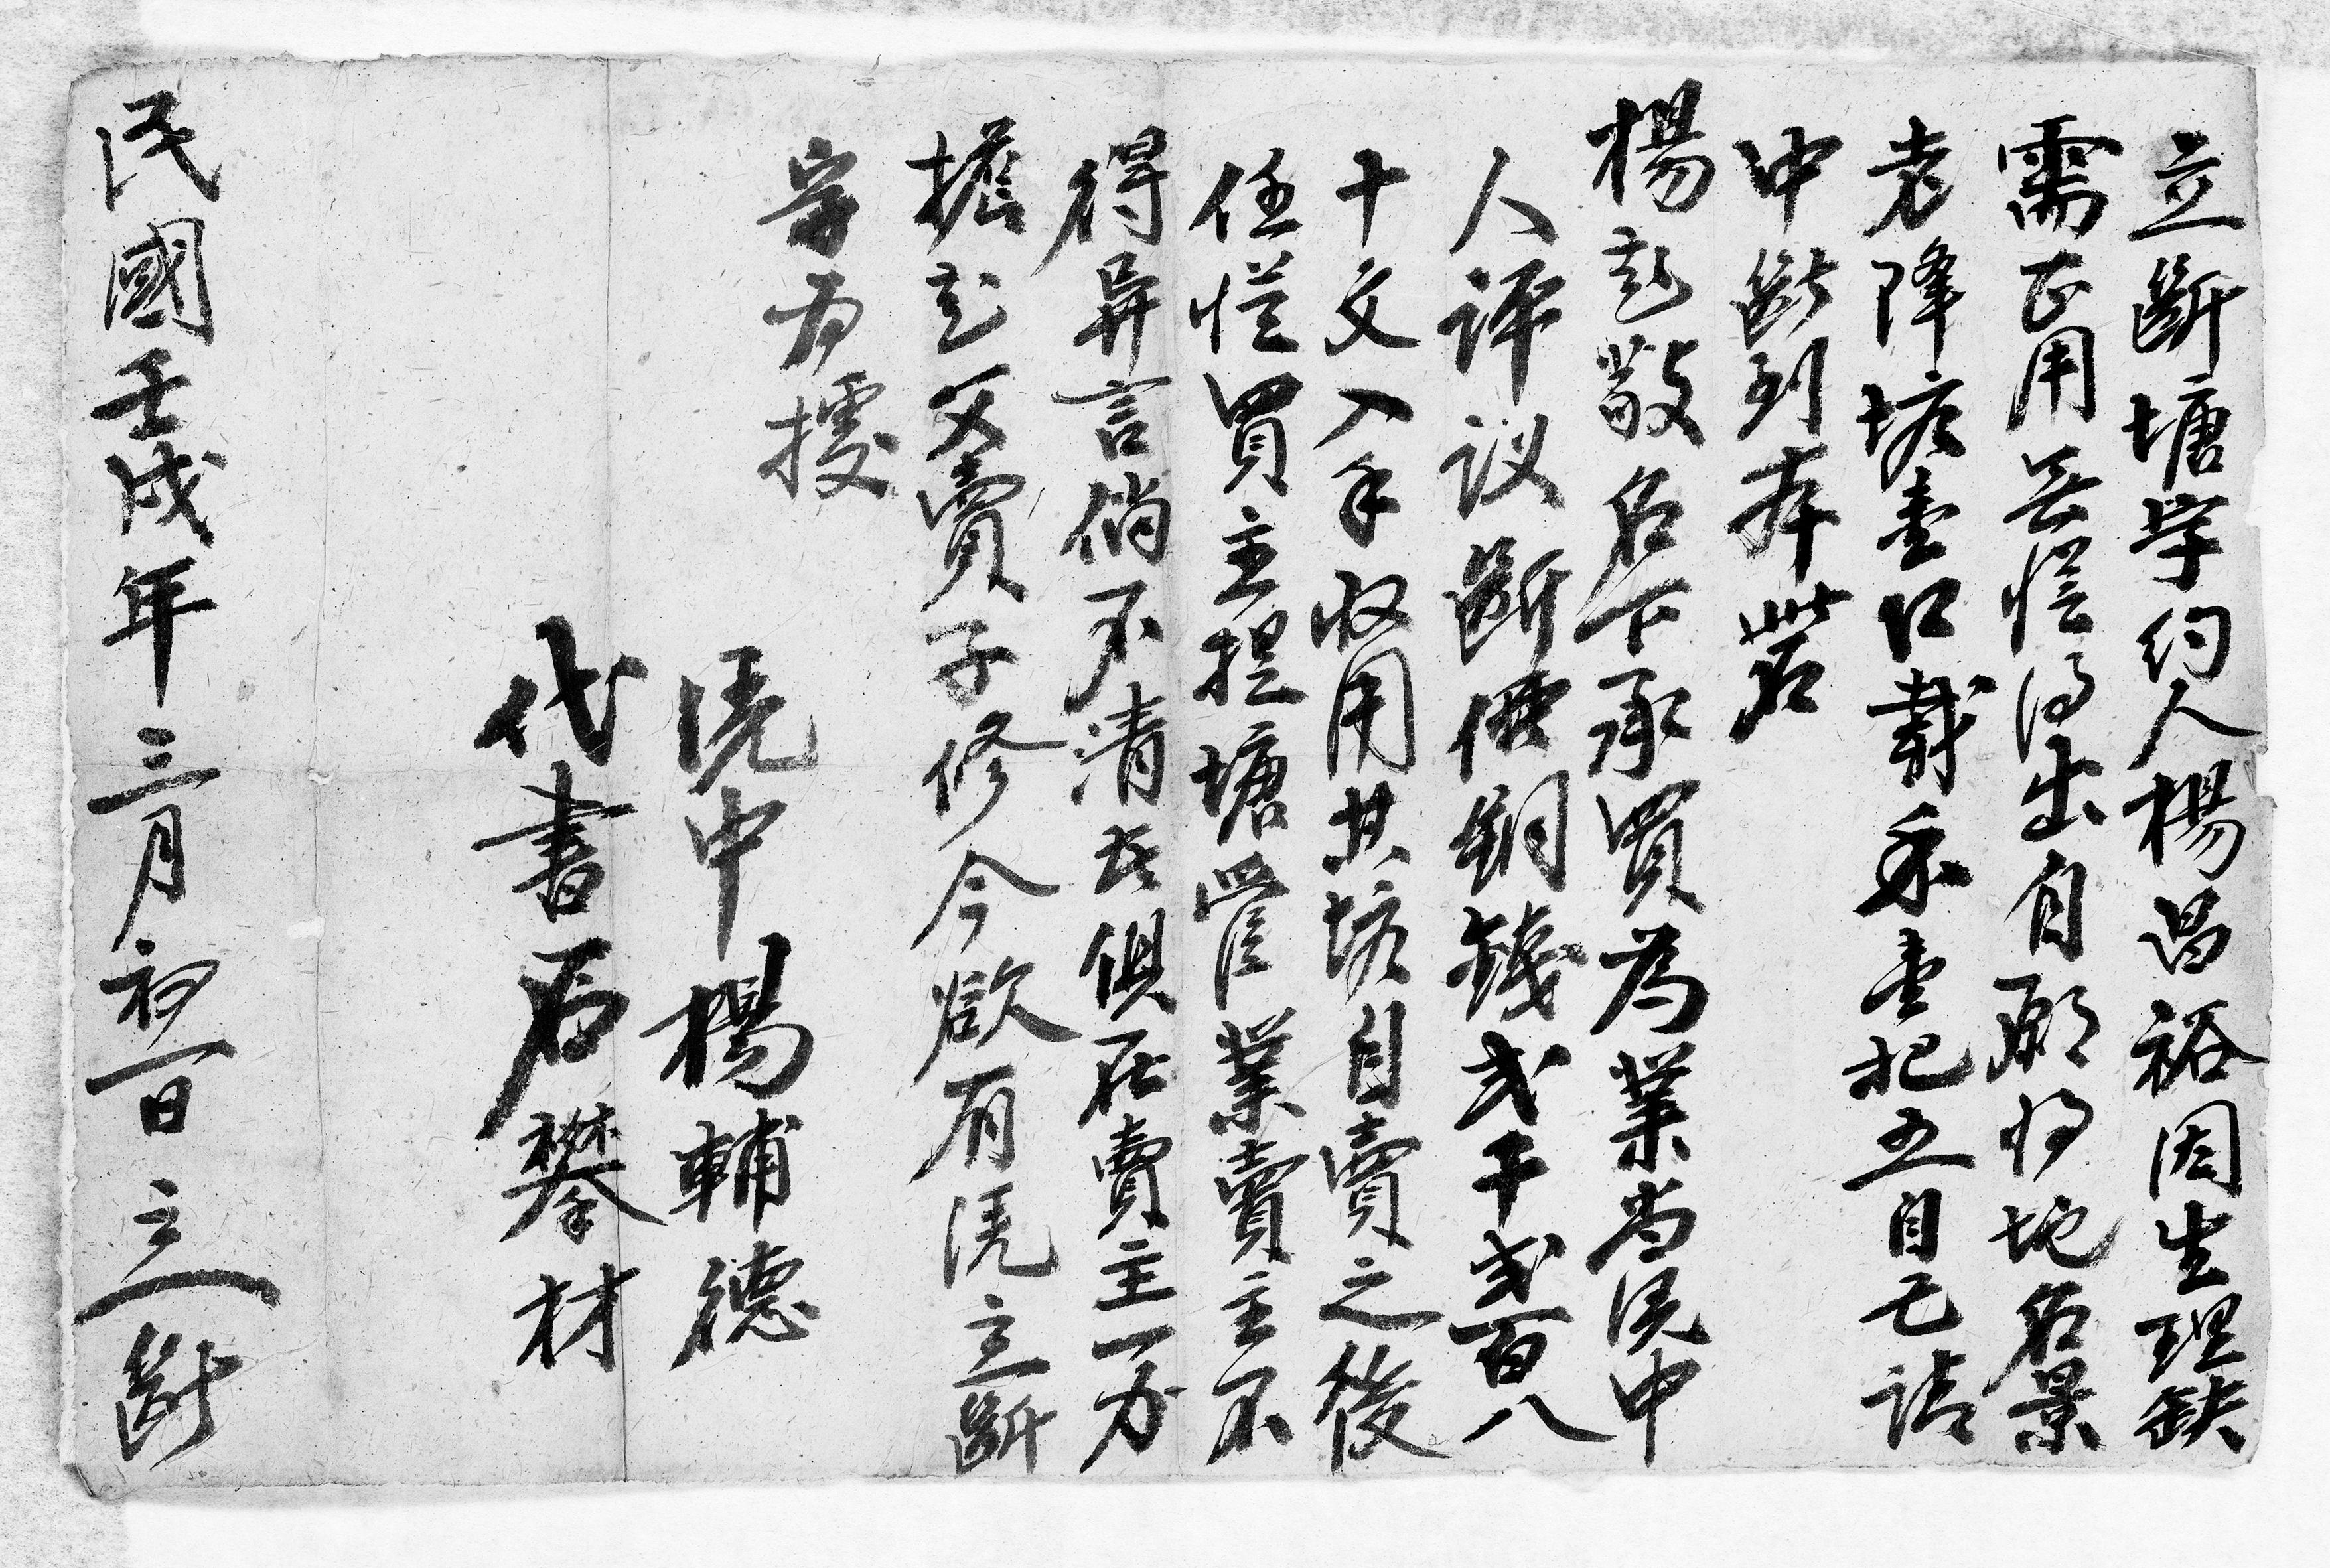 立斷塘字約人楊昌裕因生理缺
需正用無従得出自願將地名景
老降塘壹口載禾壹把五自己請
中斷到本岩
楊起敬名下承買為業當凴中
人評议斷價銅錢弍千弍百八
十文入手收用其塘自賣之後
任從買主提塘管業賣主不
得异言倘不清者俱在賣主一力
擔起父賣子修今欲有凴立斷
字為據
凴中楊輔德
代書石攀材
民國壬戌年三月初一日立斷